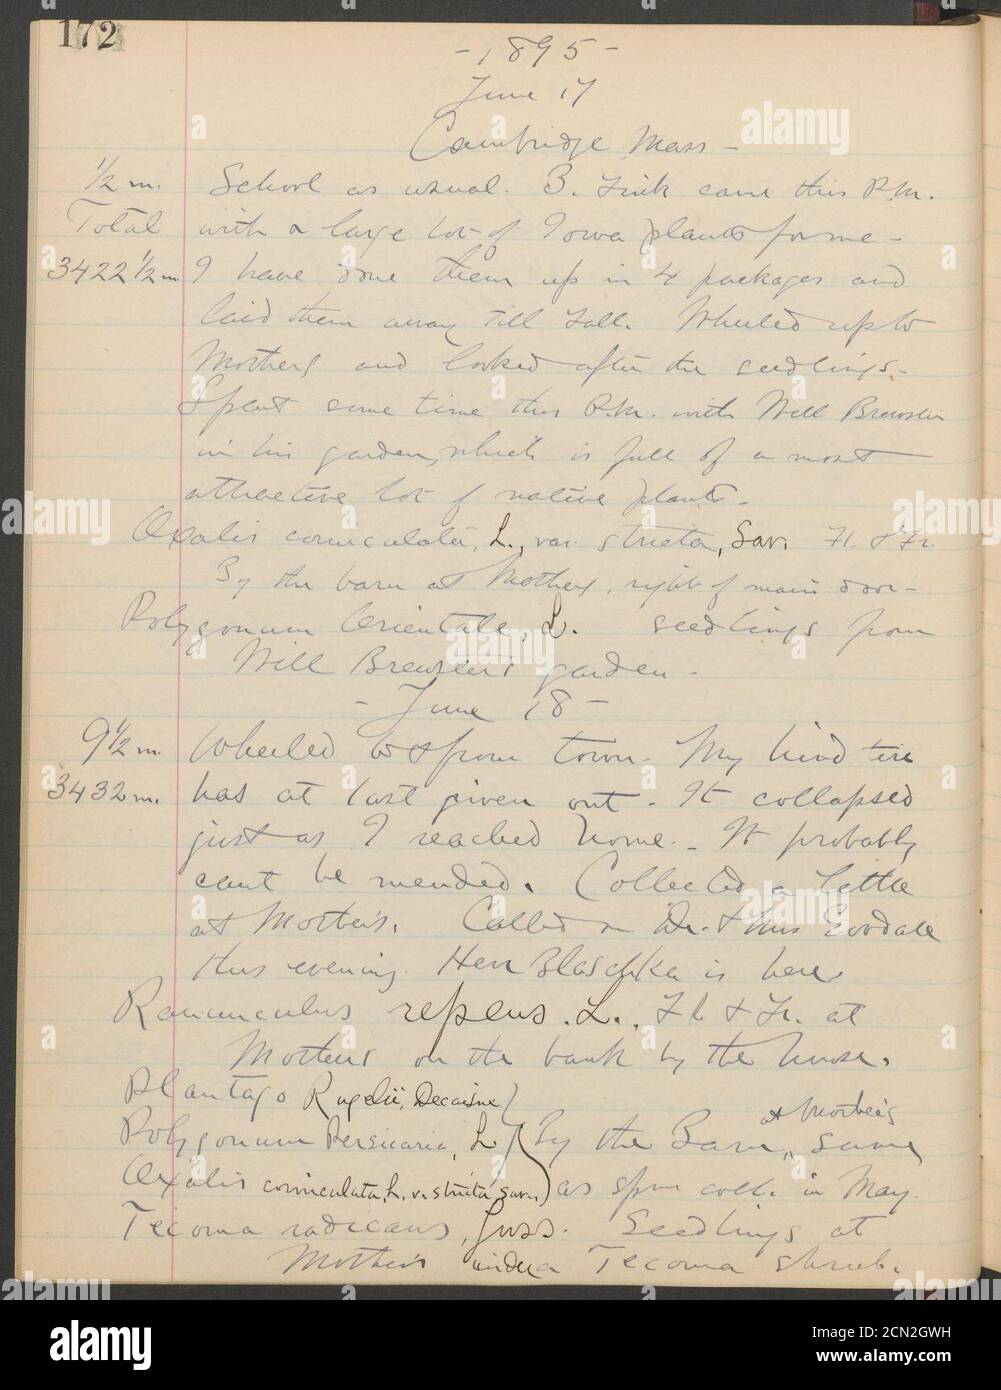 172
- 1895 -
June 17
Cambridge Mass -
1/2 m. School as usual. B. Fink came this P.M.
Total with a large lot of Iowa plants for me -
3422 1/2 m. I have done them up in 4 packages and
laid them away till Fall. Wheeled up to
Mothers and looked after the seedlings -
Spent some time this P.M. with Will Brewster
in his garden, which is full of a most
attractive lot of native plants -
Oxalis corniculata, L., var. stricta, Sav. Fl. & Fr.
By the barn at Mothers, right of main door -
Polygonum Orientale, L. seedlings from
Will Brewster's garden -
- June 18 -
9 1/2 m. Wheeled to & from town. My hind tire
3432 m. has at last given out. It collapsed
just as I reached home. - It probably
cant be mended. Collected a little
at Mother's. Called on Dr. & Mrs Goodale
this evening. Herr Blaschka is here
Ranunculus repens. L., Fl. & Fr. at
Mothers on the bank by the house.
Plantago Rugelii, Decaisne }
at Mother's
Polygonum Persicaria, L. } By the Barn, same
Oxalis corniculata, L. v. stricta, Sav. } as spm coll. in May.
Tecoma radicans, Juss. Seedlings at
Mother's under a Tecoma shrub.
alamy
alamy
Image ID: 2CN2GWH
www.alamy.com